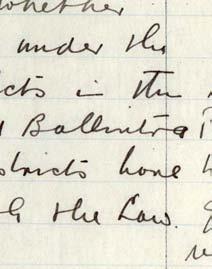 whether
under the
cts in the
Ballintra
stricts have
the Law.